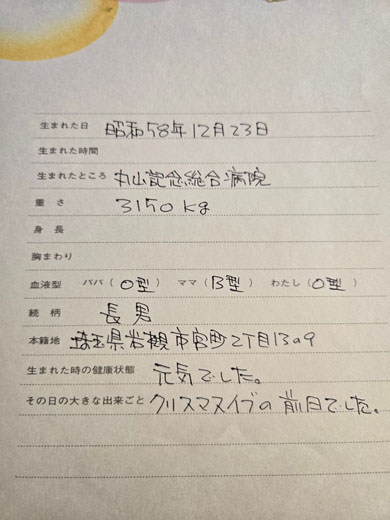 生まれた日 昭和58年12月23日
生まれた時間
生まれたところ 丸山記念総合病院
重さ 3150kg
身長
胸まわり
血液型 パパ（O型）ママ（B型）わたし（O型）
続柄 長男
本籍地 埼玉県岩槻市宮町2丁目13の9
生まれた時の健康状態 元気でした。
その日の大きな出来ごと クリスマスイブの前日でした。